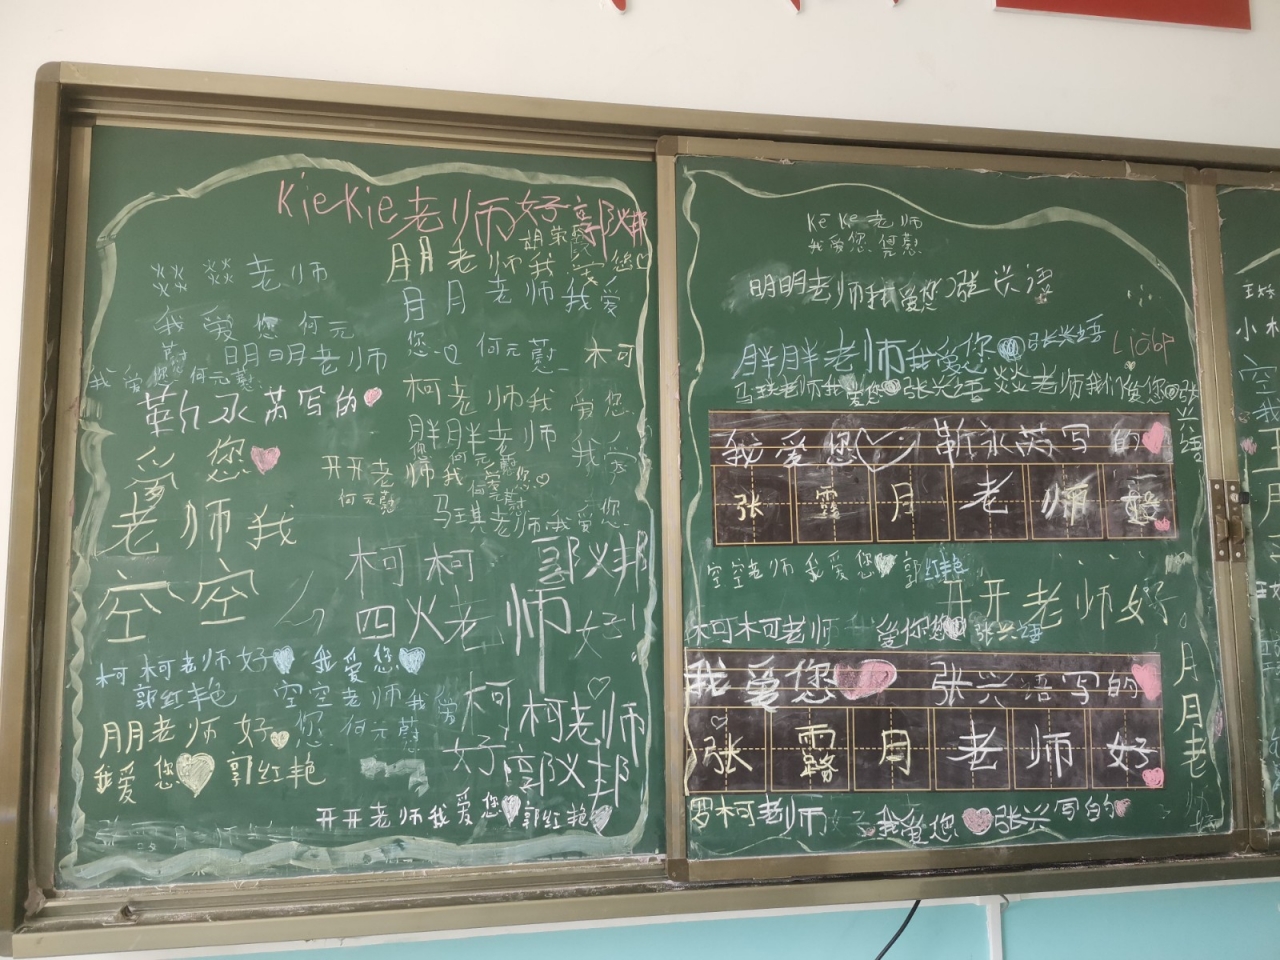 KieKie老师好郭义邦
朋朋老师我爱您
焱焱老师
月月老师我爱
我爱您何元
您 何元慧
慧 明明老师
我爱您何元慧
柯
柯老师我
爱您
靳永芮写的
胖胖老师
我爱
爱您
开开老
师我
您
何元慧
马琪老师我爱您
老师我
空空
柯柯
郭义邦
四火老师好
柯柯老师好 我爱您
郭红艳 空空老师我爱
您 何元慧
柯柯老师
好 郭义邦
朋朋老师好
我爱您 郭红艳
开开老师我爱您 郭红艳
Ke Ke老师
我爱您 何元慧
明明老师我爱您 张兴语
胖胖老师我爱您 张兴语
马琪老师我爱您 张兴语 焱焱老师我们爱您 张
兴语
我爱您 靳永芮写的
张露月老师
空空老师我爱您 郭红艳
开开老师好
柯柯老师 爱你您 张兴语
我爱您 张兴语写的
张露月老师好
月月老
罗柯老师 我爱您 张兴写的
小
空
我